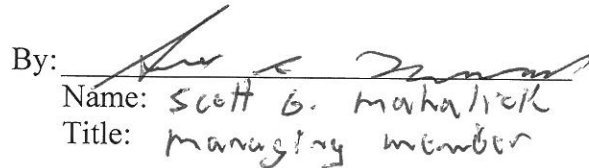 By:
Name: Scott G. Mahalick
Title: managing member